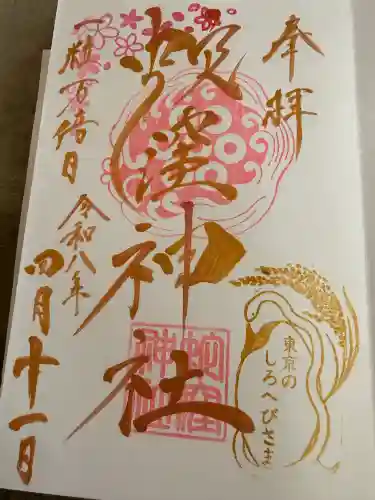 奉拝
蛇窪神社
一粒万倍日
令和八年
四月十一日
蛇窪神社
東京の
しろへびさま